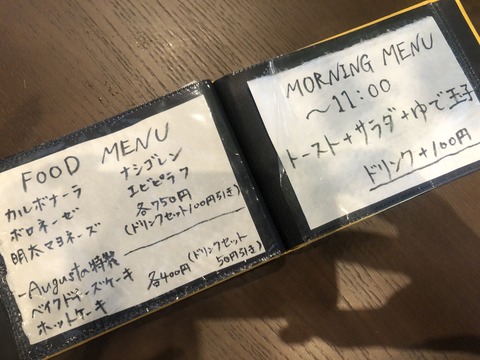 FOOD MENU
カルボナーラ ナシゴレン
ボロネーゼ エビピラフ
明太マヨネーズ 各750円
(ドリンクセット100円引き)
-Augustの特製
ベイクドチーズケーキ 各400円 (ドリンクセット
ホットケーキ 50円引き)
MORNING MENU
～11:00
トースト+サラダ+ゆで玉子
ドリンク+100円